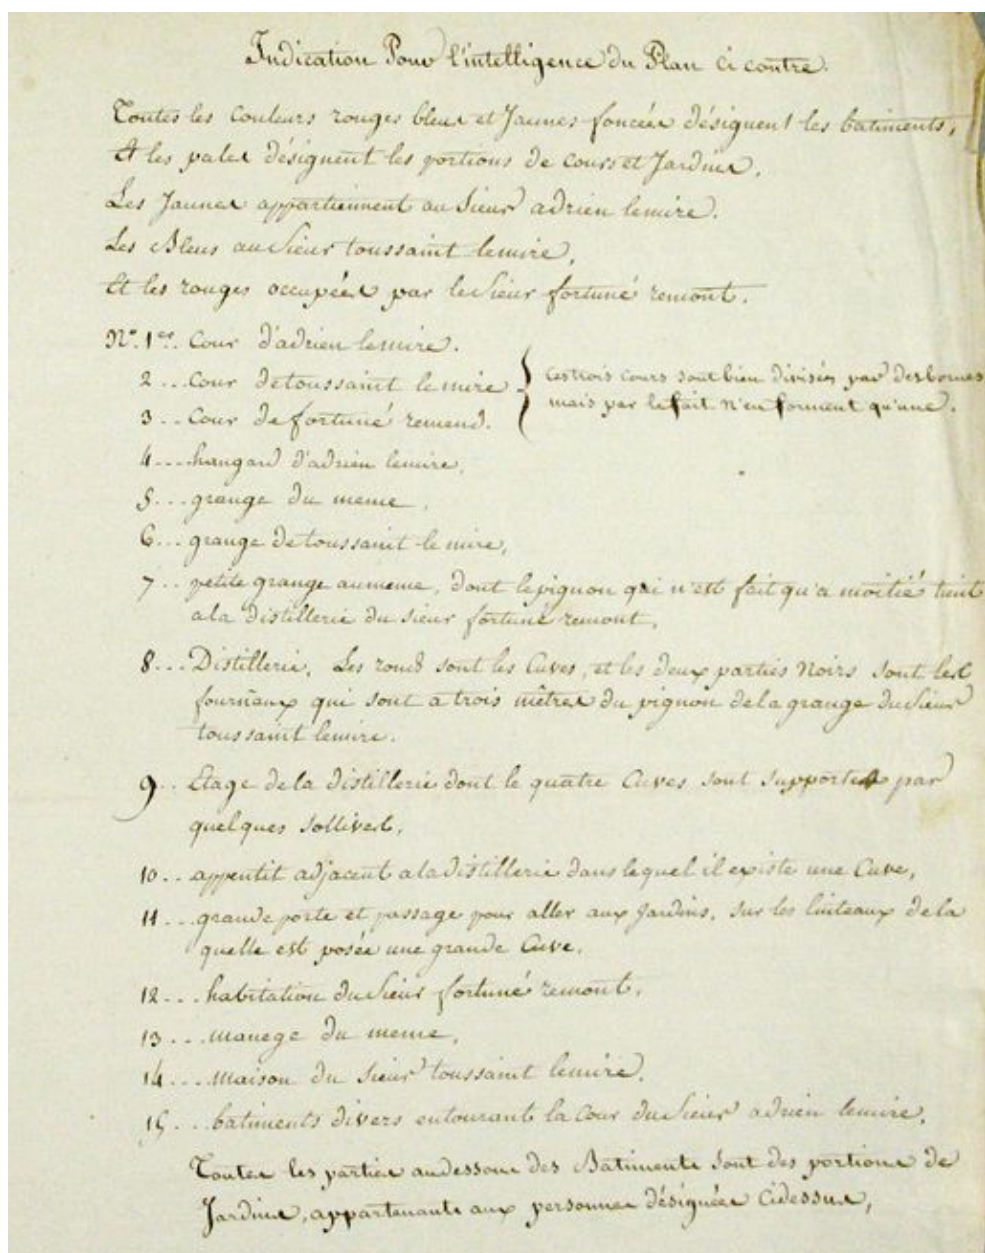 Indication Pour l'intelligence du Plan ci contre.
Toutes les couleurs rouges bleues et Jaunes foncées désignent les batiments,
Et les pales désignent les portions de cours et Jardins.
Les Jaunes appartiennent au Sieur adrien lemire.
Les Bleus au Sieur toussaint lemire,
Et les rouges occupées par le Sieur fortuné remont.
N.º 1.er Cour d'adrien lemire.
2 .. Cour de toussaint le mire
3 .. Cour de fortuné remond.
ces trois cours sont bien divisées par des bornes
mais par le fait n'en forment qu'une.
4 ... hangard d'adrien lemire,
5 ... grange du meme,
6 ... grange de toussaint le mire,
7 .. petite grange au meme, dont le pignon qui n'est fait qu'a moitié tient
a la distillerie du sieur fortuné remont,
8 ... Distillerie, Les ronds sont les Cuves, et les deux parties Noirs sont les
fourneaux qui sont a trois mètres du pignon de la grange du Sieur
toussaint lemire.
9 .. Etage de la distillerie dont le quatre Cuves sont supportes par
quelques sollives,
10 .. appentit adjacent a la distillerie dans lequel il existe une Cuve,
11 ... grande porte et passage pour aller aux Jardins, sur les linteaux de la
quelle est posée une grande Cuve,
12 ... habitation du Sieur fortuné remont,
13 ... manege du meme,
14 .... maison du Sieur toussaint lemire,
15 ... batiments divers entourant la Cour du Sieur adrien lemire,
Toutes les parties audessous des Batiments sont des portions de
Jardins, appartenants aux personnes désignées Cidessus,